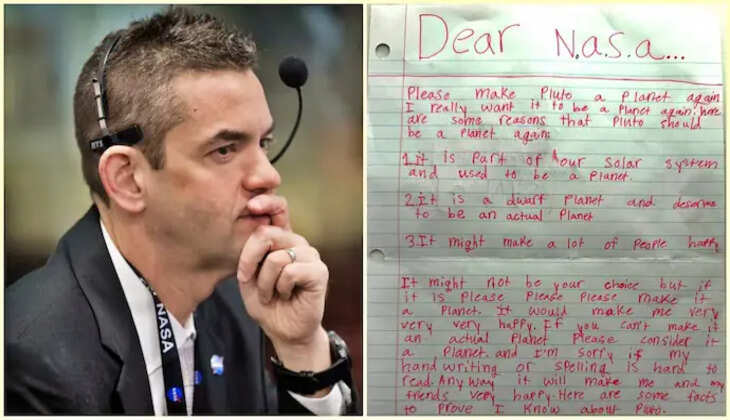 RTS
NASA
Dear N.a.s.a...
Please make Pluto a Planet again
I really want it to be a Planet again. here
are some reasons that Pluto should
be a Planet again.
1. it is Part of our solar system
and used to be a Planet.
2. It is a dwarf Planet and deserve
to be an actual Planet
3. It might make a lot of People happy
It might not be your choice but if
it is Please Please Please make it
a Planet. It would make me very
very very happy. If you can't make it
an actual Planet Please consider it
a Planet. and I'm sorry if my
hand writing or spelling is hard to
read. Any way it will make me and my
friends very happy. Here are some facts
to Prove I Know about Pluto.